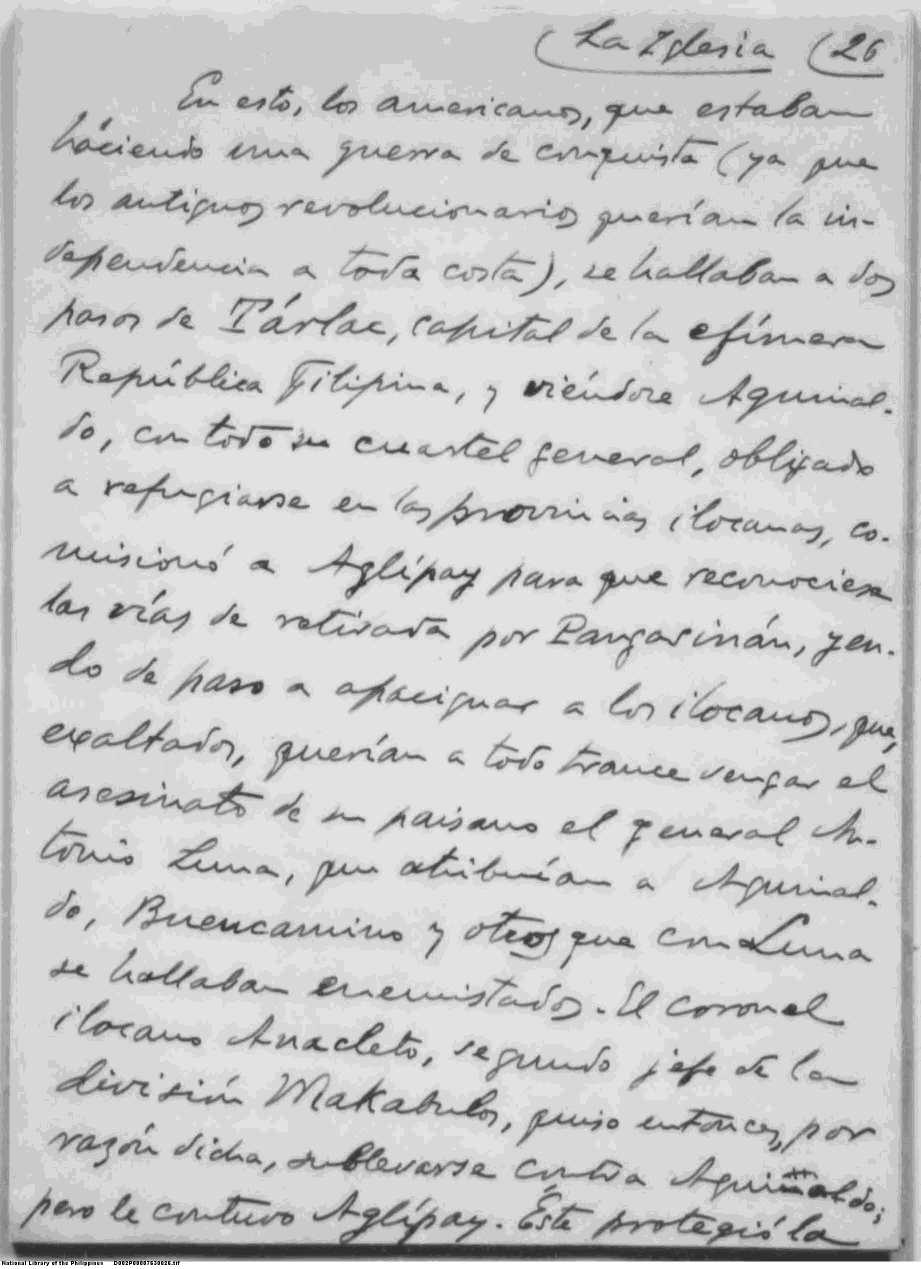 (La Iglesia (26
En esto, los americanos, que estaban
haciendo una guerra de conquista (ya que
los antiguos revolucionarios querían la in-
dependencia a toda costa), se hallaban a dos
pasos de Tárlac, capital de la efímera
República Filipina, y viéndose Aguinal-
do, con todo su cuartel general, obligado
a refugiarse en las provincias ilocanas, co-
misionó a Aglípay para que reconociese
las vías de retirada por Pangasinán, yen-
do de paso a apaciguar a los ilocanos, que,
exaltados, querían a todo trance vengar el
asesinato de su paisano el general An-
tonio Luna, que atribuían a Aguinal-
do, Buencamino y otros que con Luna
se hallaban enemistados. El coronel
ilocano Anacleto, segundo jefe de la
división Makabulos, quiso entonces, por
razón dicha, sublevarse contra Aguinaldo;
pero le contuvo Aglípay. Éste protegió la
National Library of the Philippines D002P00087630026.tif